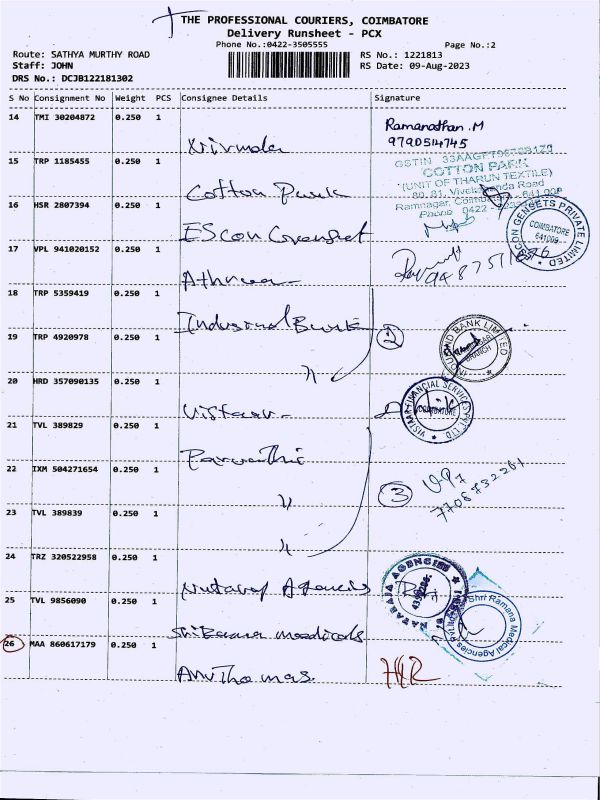 THE PROFESSIONAL COURIERS, COIMBATORE
Delivery Runsheet - PCX
Phone No.:0422-3505555
Page No.:2
Route: SATHYA MURTHY ROAD
RS No.: 1221813
Staff: JOHN
RS Date: 09-Aug-2023
DRS No.: DCJB122181302
S No Consignment No Weight PCS Consignee Details Signature
14 TMI 30204872 0.250 1
Ramanathan.M
9790514745
15 TRP 1185455 0.250 1
Cotton Park
GSTIN
COTTON PARK
(UNIT OF THARUN TEXTILE)
80, 81, Vivekananda Road
Ramnagar, Coimbatore - 641 009
Phone 0422
16 HSR 2807394 0.250 1
EScon Genset
ESCON GENSETS PRIVATE LIMITED
COIMBATORE
641009
17 VPL 941020152 0.250 1
18 TRP 5359419 0.250 1
Industrial Bank
19 TRP 4920978 0.250 1
"
2
INDUSIND BANK LIMITED
BRANCH
20 HRD 357090135 0.250 1
Vistaar
VISTAAR FINANCIAL SERVICES PVT. LTD
COIMBATORE
21 TVL 389829 0.250 1
Parvathi
22 IXM 504271654 0.250 1
"
3
23 TVL 389839 0.250 1
"
24 TRZ 320522958 0.250 1
Nataraj Agencies
NATARAJA AGENCIES
25 TVL 9856090 0.250 1
Sri Ramana medicals
Shri Ramana Medical Agencies
26 MAA 860617179 0.250 1
Anu Thomas.